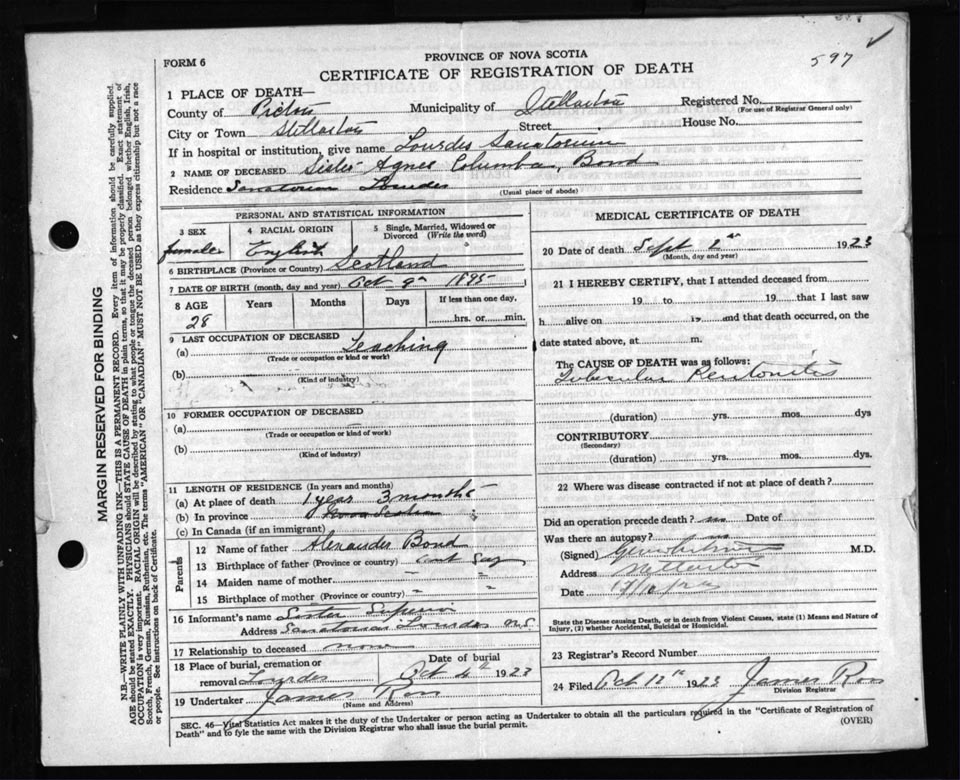 597
FORM 6
PROVINCE OF NOVA SCOTIA
CERTIFICATE OF REGISTRATION OF DEATH
1 PLACE OF DEATH—
County of Pictou Municipality of Stellarton Registered No.
(For use of Registrar General only)
City or Town Stellarton Street House No.
If in hospital or institution, give name Lourdes Sanatorium
2 NAME OF DECEASED Sister Agnes Columba, Bond
Residence Sanatorium Lourdes
(Usual place of abode)
PERSONAL AND STATISTICAL INFORMATION
3 SEX 4 RACIAL ORIGIN 5 Single, Married, Widowed or Divorced (Write the word)
female English
6 BIRTHPLACE (Province or Country) Scotland
7 DATE OF BIRTH (month, day and year) Oct 9th 1895
8 AGE Years Months Days If less than one day,
28 hrs. or min.
9 LAST OCCUPATION OF DECEASED
(a) Teaching
(Trade or occupation or kind or work)
(b)
(Kind of industry)
10 FORMER OCCUPATION OF DECEASED
(a)
(Trade or occupation or kind of work)
(b)
(Kind of industry)
11 LENGTH OF RESIDENCE (In years and months)
(a) At place of death 1 year 3 months
(b) In province Nova Scotia
(c) In Canada (if an immigrant)
Parents
12 Name of father Alexander Bond
13 Birthplace of father (Province or country) cant Say
14 Maiden name of mother "
15 Birthplace of mother (Province or country) "
16 Informant's name Sister Superior
Address Sanatorium Lourdes N.S.
17 Relationship to deceased none
18 Place of burial, cremation or removal Lourdes Date of burial Oct 4th 1923
19 Undertaker James Ross
(Name and Address)
MEDICAL CERTIFICATE OF DEATH
20 Date of death Sept 2nd 1923
(Month, day and year)
21 I HEREBY CERTIFY, that I attended deceased from
19 to 19 that I last saw
h alive on 19 and that death occurred, on the
date stated above, at m.
The CAUSE OF DEATH was as follows:
Tubercular Peritonitis
(duration) yrs. mos. dys
CONTRIBUTORY
(Secondary)
(duration) yrs. mos. dys.
22 Where was disease contracted if not at place of death?
Did an operation precede death? no Date of
Was there an autopsy? no
(Signed) M.D.
Address Stellarton
Date
State the Disease causing Death, or in death from Violent Causes, state (1) Means and Nature of Injury, (2) whether Accidental, Suicidal or Homicidal.
23 Registrar's Record Number
24 Filed Oct 12th 1923 James Ross
Division Registrar
SEC. 46—Vital Statistics Act makes it the duty of the Undertaker or person acting as Undertaker to obtain all the particulars required in the "Certificate of Registration of
Death" and to fyle the same with the Division Registrar who shall issue the burial permit. (OVER)
MARGIN RESERVED FOR BINDING
N.B.—WRITE PLAINLY WITH UNFADING INK—THIS IS A PERMANENT RECORD. Every item of information should be carefully supplied.
AGE should be stated EXACTLY. PHYSICIANS should STATE CAUSE OF DEATH in plain terms, so that it may be properly classified. Exact statement of
OCCUPATION is very important. RACIAL ORIGIN will be described by stating to what people or tongue the deceased person belonged whether English, Irish,
Scotch, French, German, Russian, Ruthenian, etc. The terms "AMERICAN" OR "CANADIAN" MUST NOT BE USED as they express citizenship but not a race
or people. See instructions on back of Certificate.